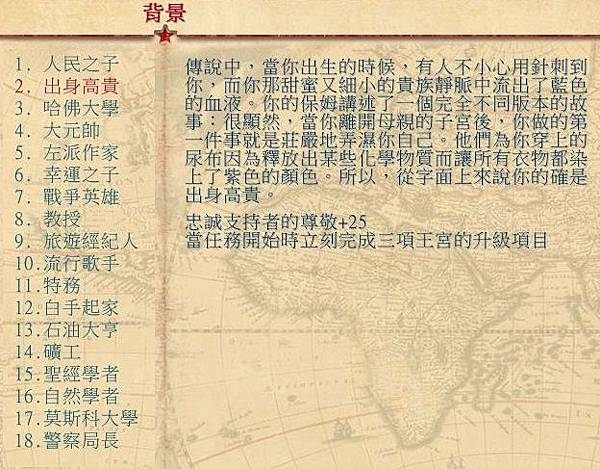 背景
1. 人民之子
2. 出身高貴
3. 哈佛大學
4. 大元帥
5. 左派作家
6. 幸運之子
7. 戰爭英雄
8. 教授
9. 旅遊經紀人
10.流行歌手
11.特務
12.白手起家
13.石油大亨
14.礦工
15.聖經學者
16.自然學者
17.莫斯科大學
18.警察局長
傳說中，當你出生的時候，有人不小心用針刺到
你，而你那甜蜜又細小的貴族靜脈中流出了藍色
的血液。你的保姆講述了一個完全不同版本的故
事：很顯然，當你離開母親的子宮後，你做的第
一件事就是莊嚴地弄濕你自己。他們為你穿上的
尿布因為釋放出某些化學物質而讓所有衣物都染
上了紫色的顏色。所以，從字面上來說你的確是
出身高貴。
忠誠支持者的尊敬+25
當任務開始時立刻完成三項王宮的升級項目